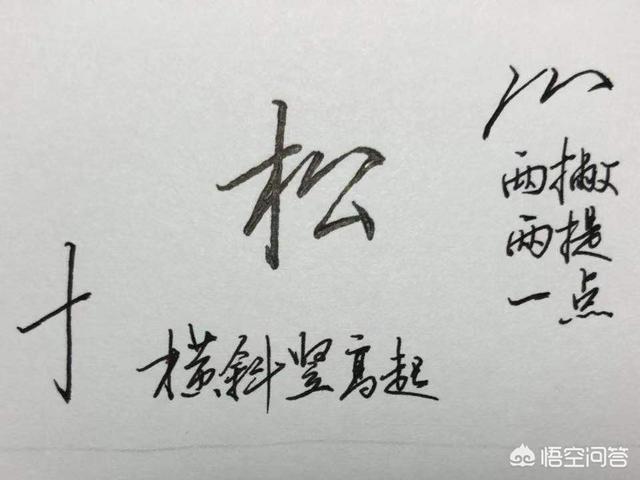 松
两撇
两提
一点
横斜竖高起
悟空问答